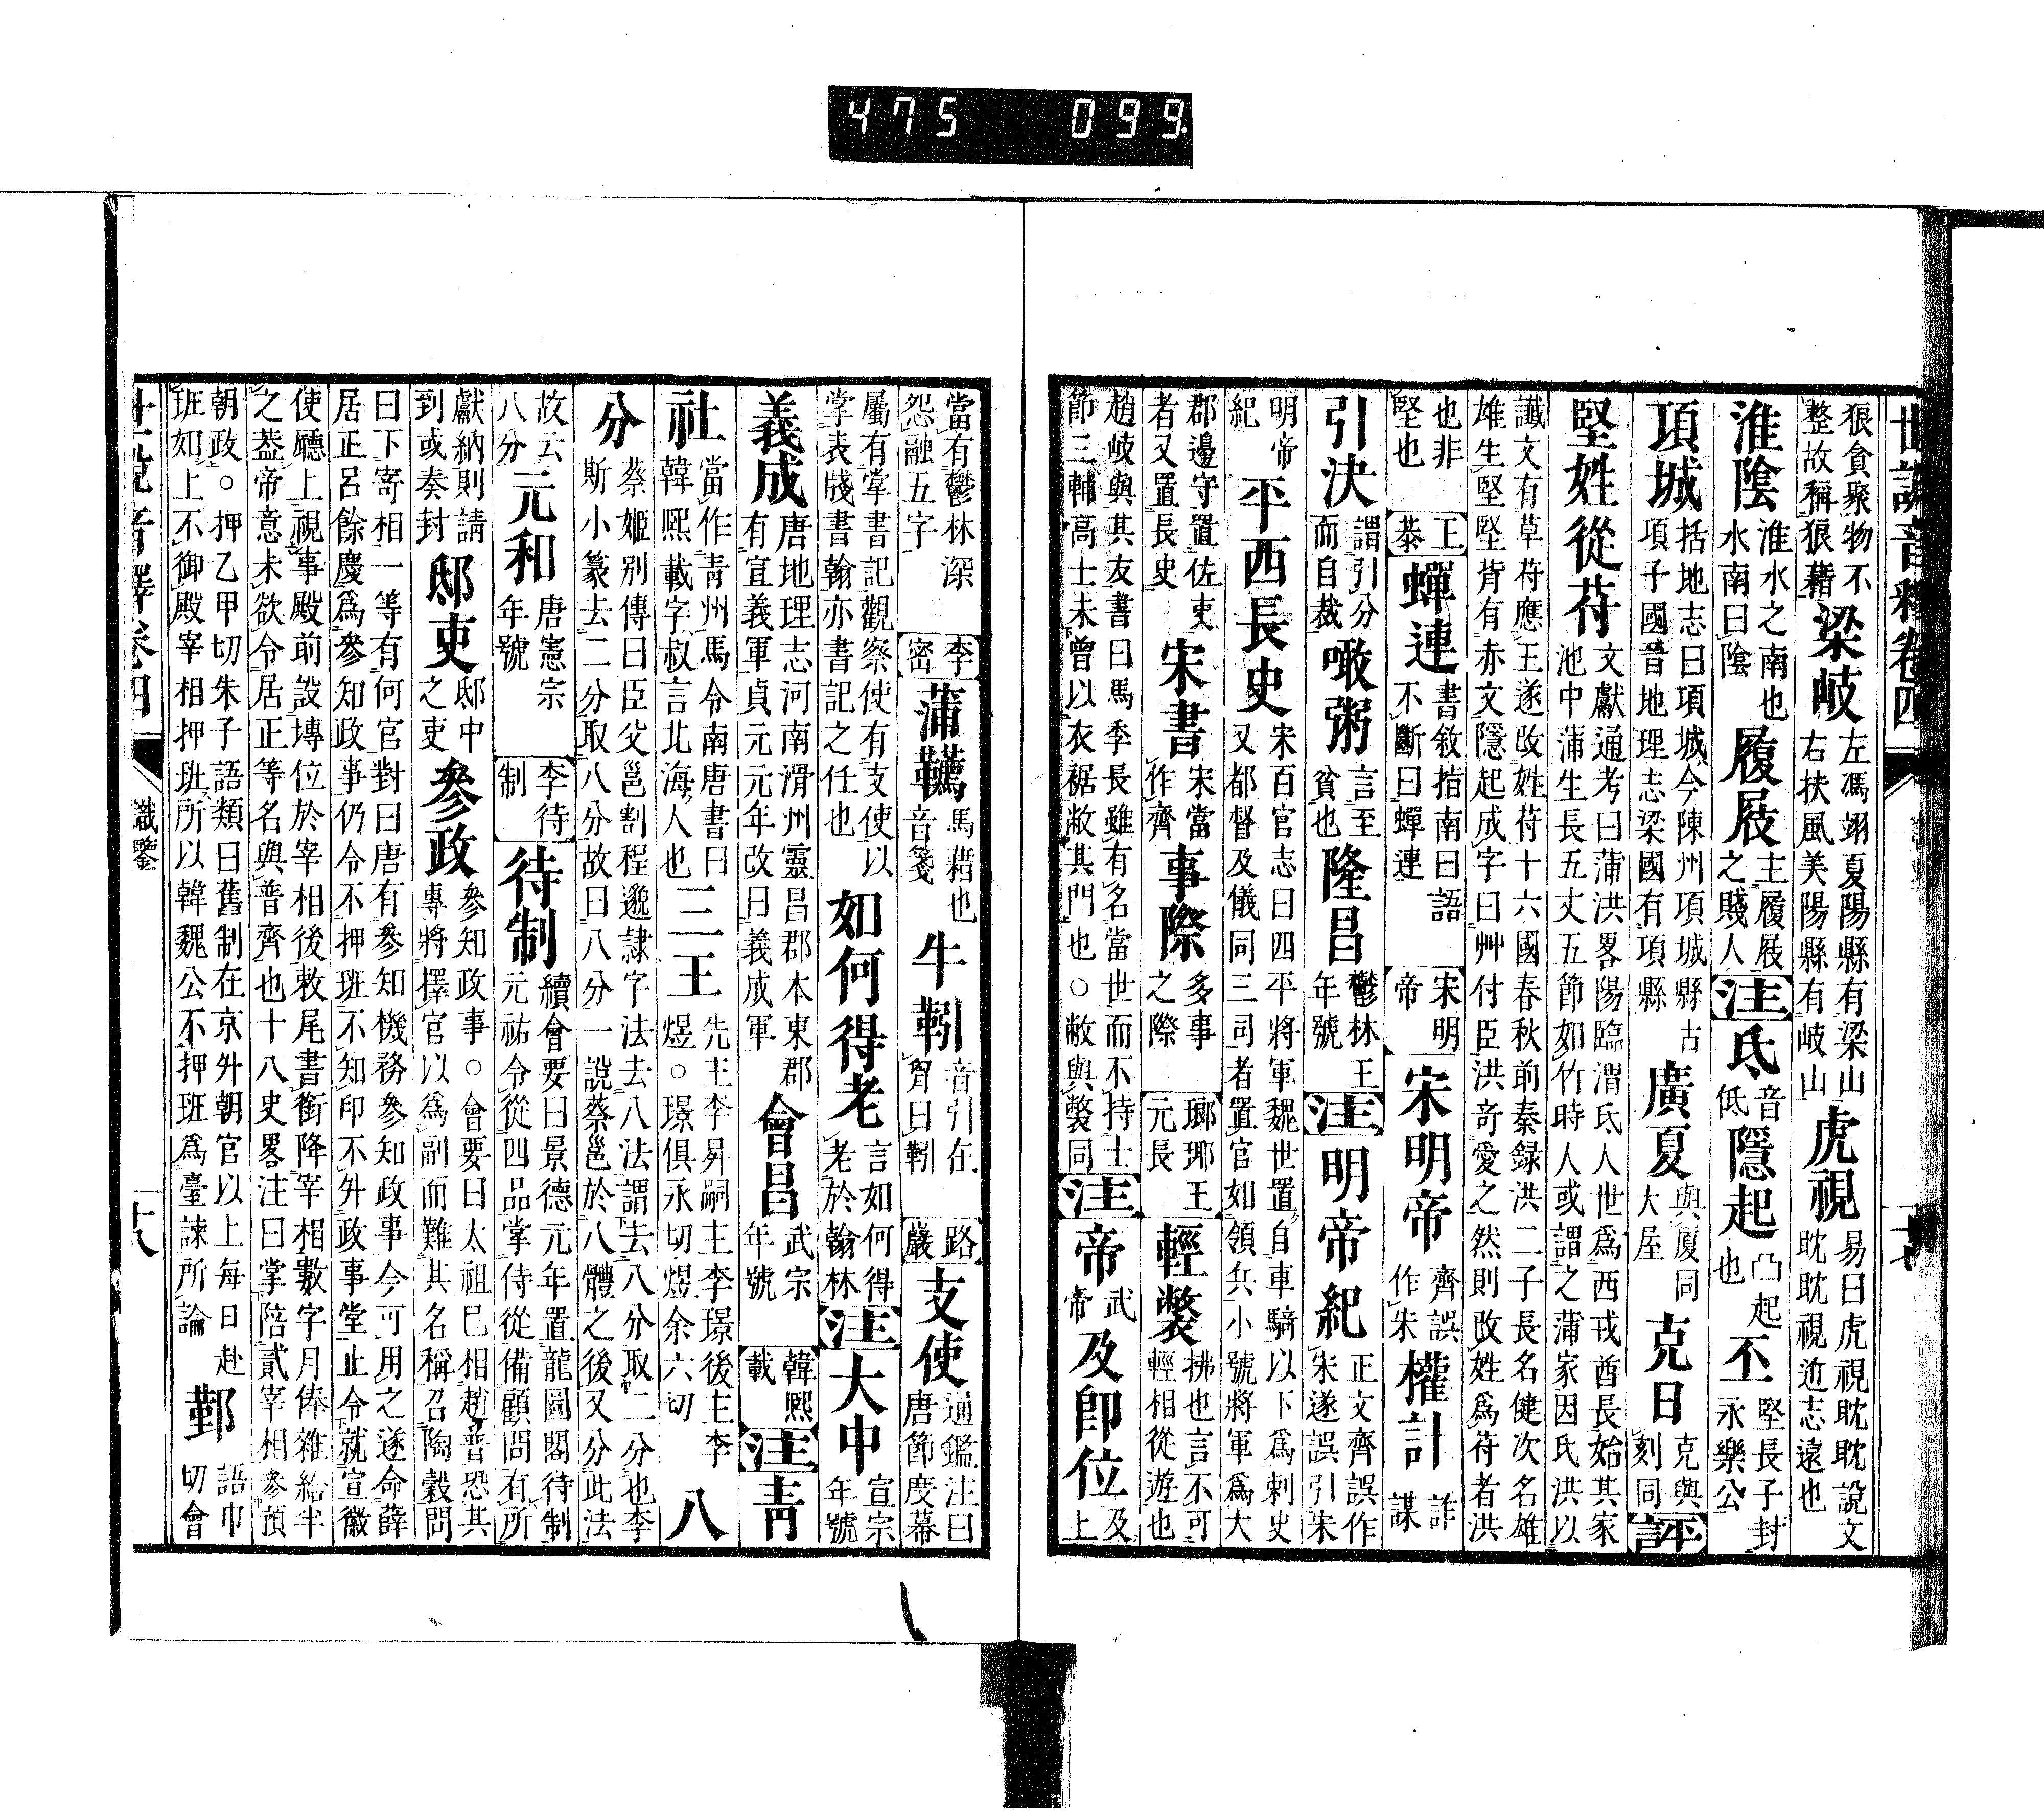 475 099
世說音釋卷四
狼貪聚物不整故稱狼藉 梁岐 左馮翊夏陽縣有梁山右扶風美陽縣有岐山 虎視 易曰虎視眈眈說文眈眈視近志遠也
淮陰 淮水之南也水南曰陰 履屐 主履屐之賤人 注 氐 音低 隱起 凸起也 丕 堅長子封永樂公
項城 括地志曰項城今陳州項城縣古項子國晉地理志梁國有項縣 廣夏 與厦同大屋 克日 克與刻同 評
堅姓從苻 文獻通考曰蒲洪畧陽臨渭氐人世爲西戎酋長始其家池中蒲生長五丈五節如竹時人或謂之蒲家因氏洪以
讖文有草苻應王遂改姓苻十六國春秋前秦録洪二子長名健次名雄雄生堅堅背有赤文隱起成字曰艸付臣洪奇愛之然則改姓爲苻者洪
也非堅也 王恭 蟬連 書敘指南曰語不斷曰蟬連 宋明帝 宋明帝 齊誤作朱 權計 詐謀
引決 謂引分而自裁 噉粥 言至貧也 隆昌 鬱林王年號 注 明帝紀 正文齊誤作朱遂誤引朱
明帝紀 平西長史 宋百官志曰四平將軍魏世置自車騎以下爲刺史又都督及儀同三司者置官如領兵小號將軍爲大
郡邊守置佐吏者又置長史 宋書 宋當作齊 事際 多事之際 瑯琊王元長 輕獘 拂也言不可輕相從遊也
趙岐與其友書曰馬季長雖有名當世而不持士節三輔高士未曾以衣裾敝其門也○敝與獘同 注 帝 武帝 及卽位 及上
當有鬱林深怨融五字 李密 蒲韉 馬藉也音箋 牛靷 音引在胷曰靷 路巖 支使 通鑑注曰唐節度幕
屬有掌書記觀察使有支使以掌表牋書翰亦書記之任也 如何得老 言如何得老於翰林 注 大中 宣宗年號
義成 唐地理志河南滑州靈昌郡本東郡有宣義軍貞元元年改曰義成軍 會昌 武宗年號 韓熙載 注 靑
社 當作靑州馬令南唐書曰韓熙載字叔言北海人也 二王 先主李昇嗣主李璟後主李煜○璟俱永切煜余六切 八
分 蔡姬别傳曰臣父邕割程邈隷字法去八法謂去八分取二分也李斯小篆去二分取八分故曰八分一說蔡邕於八體之後又分此法
故云八分 元和 唐憲宗年號 李待制 待制 續會要曰景德元年置龍圖閣待制元祐令從四品掌侍從備顧問有所
獻納則請到或奏封 邸吏 邸中之吏 參政 參知政事○會要曰太祖巳相趙普恐其專將擇官以爲副而難其名稱召陶穀問
曰下寄相一等有何官對曰唐有參知機務參知政事今可用之遂命薛居正呂餘慶爲參知政事仍令不押班不知印不升政事堂止令就宣徽
使廳上視事殿前設塼位於宰相後敕尾書銜降宰相數字月俸雜給半之葢帝意未欲令居正等名與普齊也十八史畧注曰掌陪貳宰相參預
朝政。押乙甲切朱子語類曰舊制在京升朝官以上每日赴班如上不御殿宰相押班所以韓魏公不押班爲臺諫所論 鄞 語巾切會
世說音釋卷四 識鑒 十八